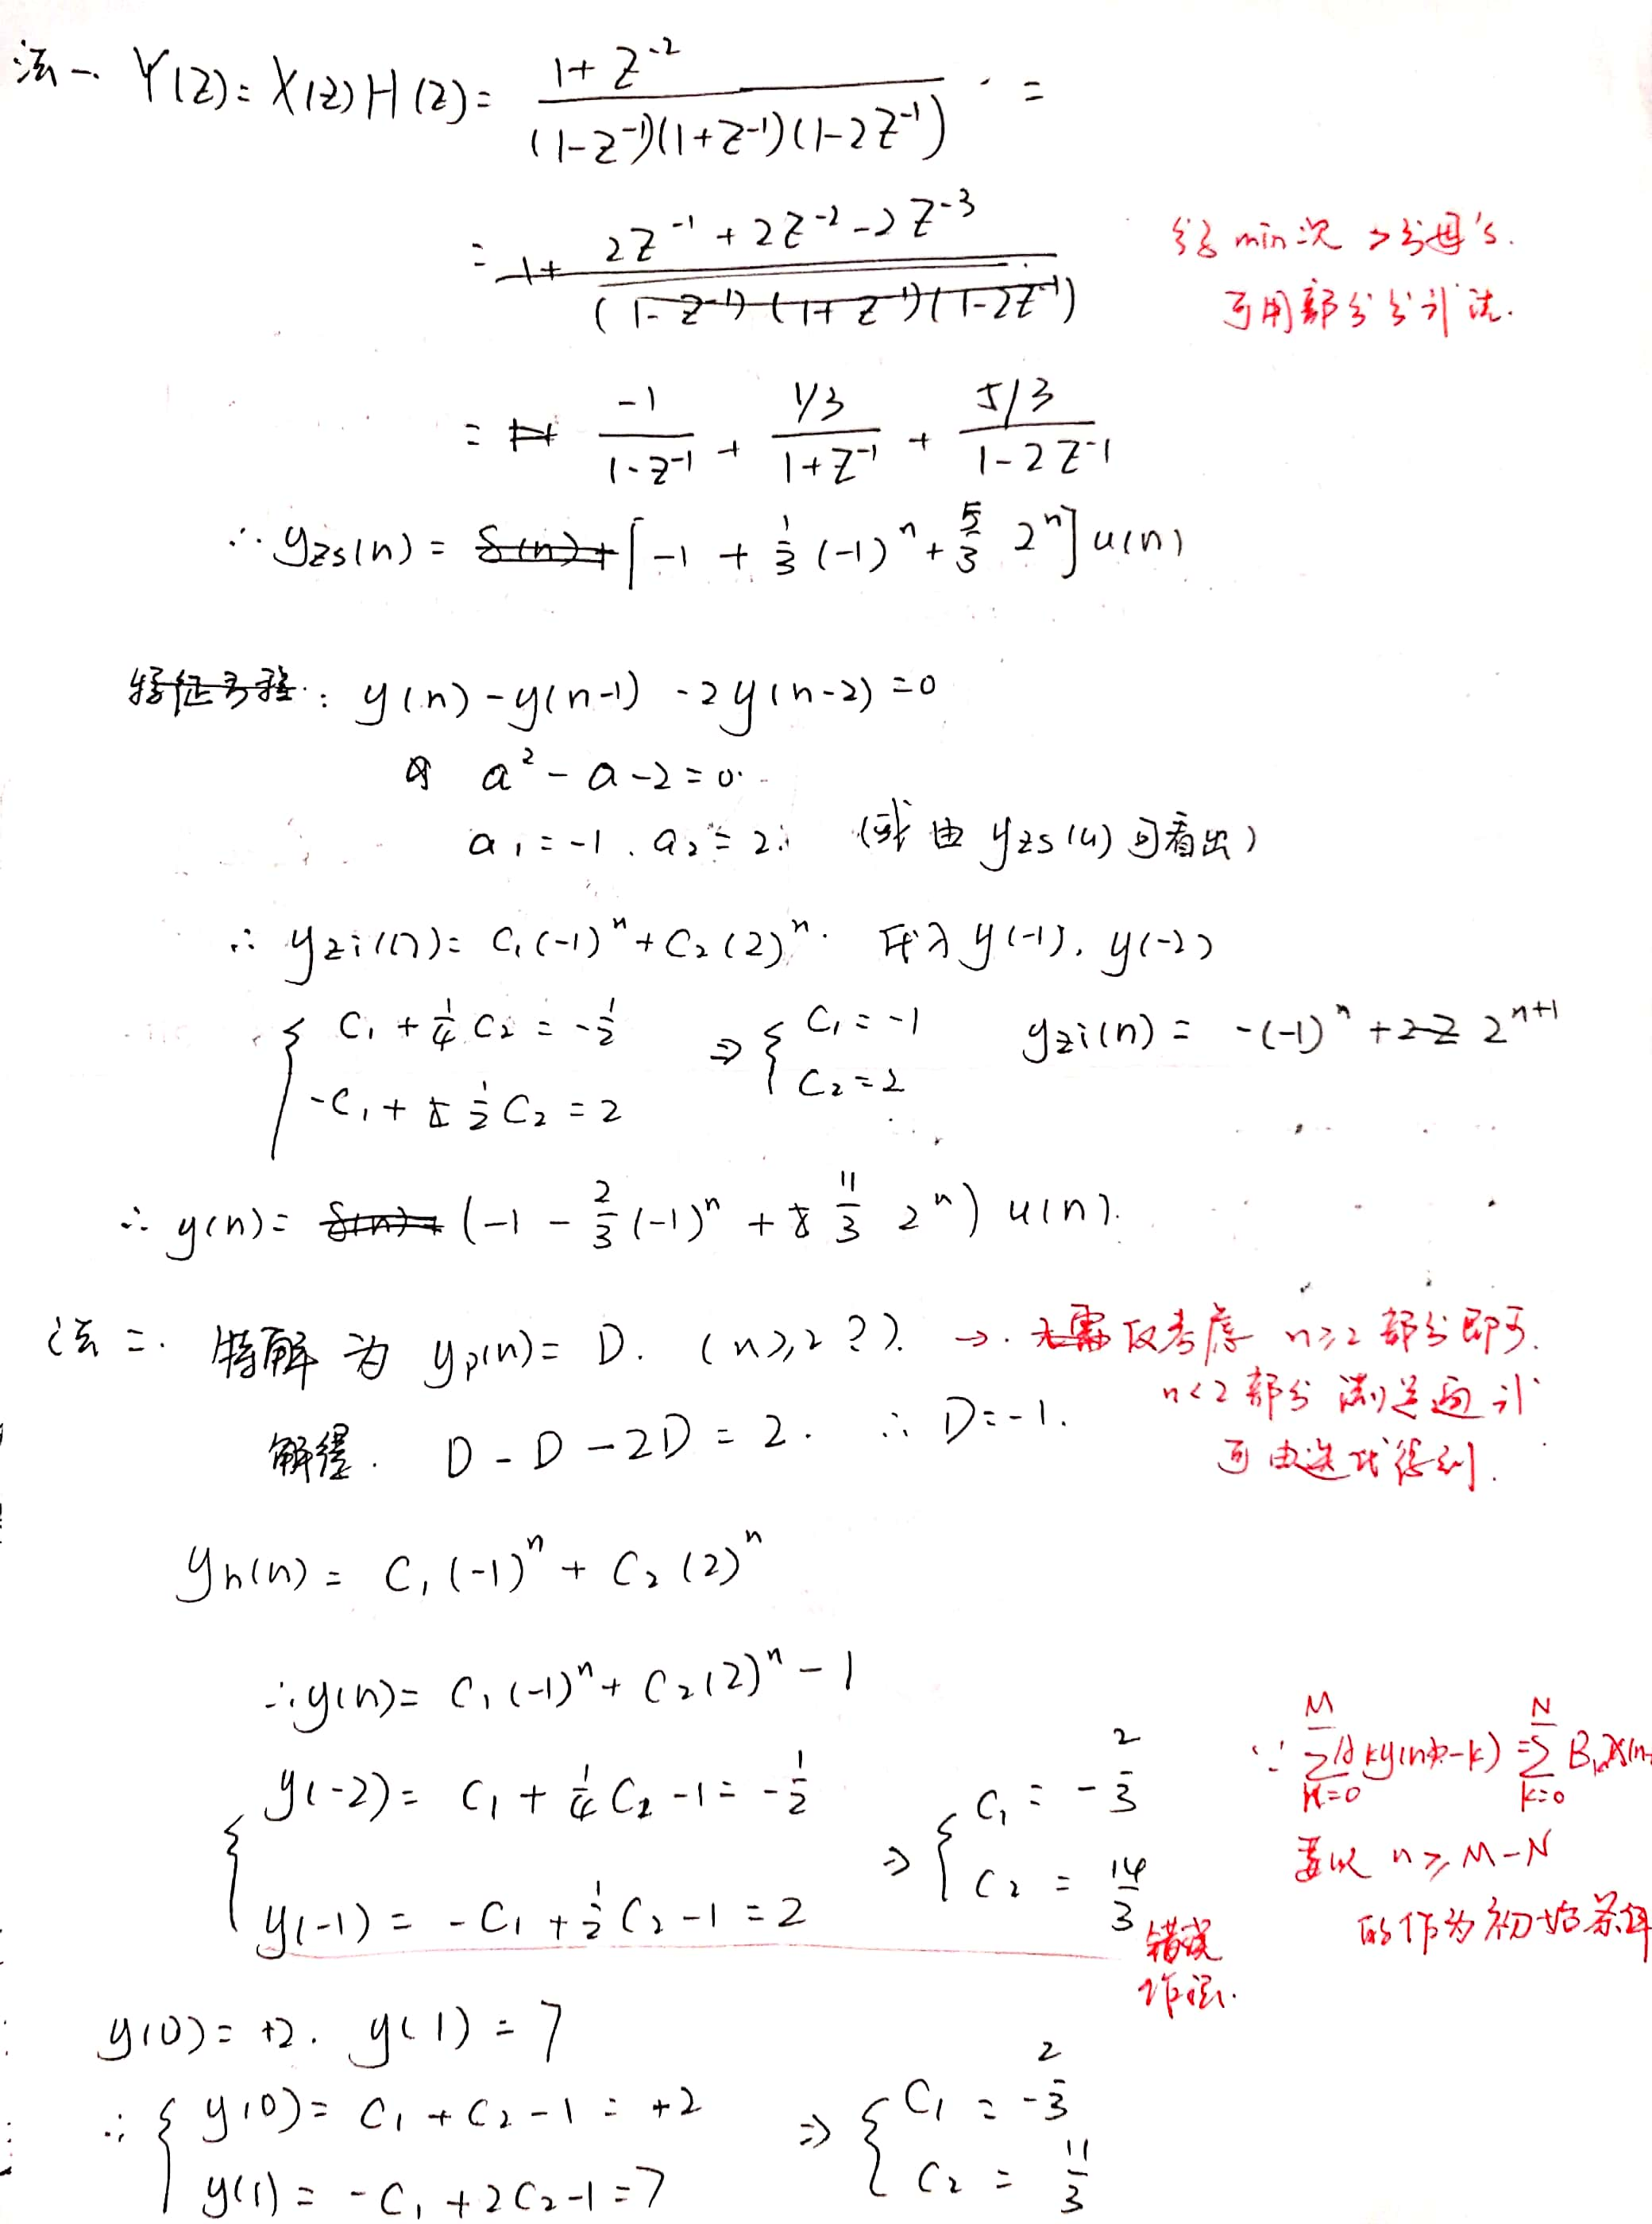 法一. Y(z)=X(z)H(z)= (1+z^-2)/((1-z^-1)(1+z^-1)(1-2z^-1)) · =
= 1+ (2z^-1+2z^-2-2z^-3)/((1-z^-1)(1+z^-1)(1-2z^-1))
分子min次 > 分母's.
可用部分分式法.
= 1+ -1/(1-z^-1) + (1/3)/(1+z^-1) + (5/3)/(1-2z^-1)
∴ yzs(n) = δ(n)+[-1 + 1/3 (-1)^n + 5/3 2^n]u(n)
特征方程: y(n)-y(n-1)-2y(n-2)=0
a²-a-2=0.
a1=-1. a2=2. (或由 yzs(n) 可看出)
∴ yzi(n)= C1(-1)^n+C2(2)^n. 代入 y(-1), y(-2)
{ C1 + 1/4 C2 = -1/2 ⇒ { C1 = -1 yzi(n) = -(-1)^n + 2^(n+1)
-C1 + 1/2 C2 = 2 C2 = 2
∴ y(n)= δ(n)+ (-1 - 2/3 (-1)^n + 11/3 2^n) u(n).
法二. 特解为 yp(n)= D. (n≥2 ?). → 无需 仅考虑 n≥2 部分即可.
n<2 部分 满足通式
解得. D-D-2D=2. ∴ D=-1.
可由迭代得到.
yh(n)= C1(-1)^n + C2(2)^n
∴ y(n)= C1(-1)^n+C2(2)^n-1
{ y(-2)= C1+1/4 C2-1=-1/2 ⇒ { C1 = -2/3
y(-1)= -C1+1/2 C2-1=2 C2 = 14/3
错误
作法.
∵ Σ(M, k=0) Ak y(n-k) = Σ(N, k=0) Bk x(n-
要以 n≥M-N
的作为初始条件
y(0)=+2. y(1)=7
∴ { y(0)= C1+C2-1=+2 ⇒ { C1 = -2/3
y(1)= -C1+2C2-1=7 C2 = 11/3